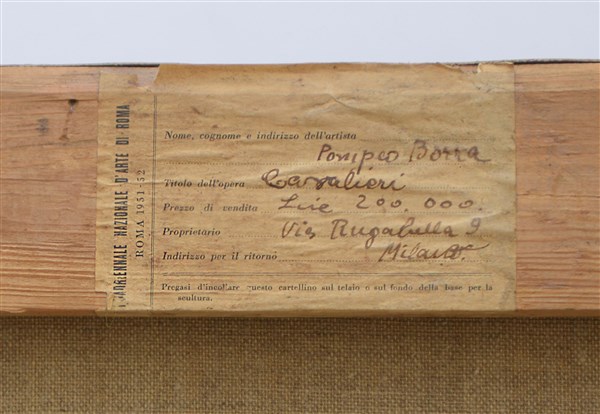 QUADRIENNALE NAZIONALE D'ARTE DI ROMA
ROMA 1951-52
Nome, cognome e indirizzo dell'artista
Pompeo Borra
Titolo dell'opera Cavalieri
Prezzo di vendita Lire 200.000.
Proprietario Via Rugabella 9
Indirizzo per il ritorno Milano
Pregasi d'incollare questo cartellino sul telaio o sul fondo della base per la
scultura.